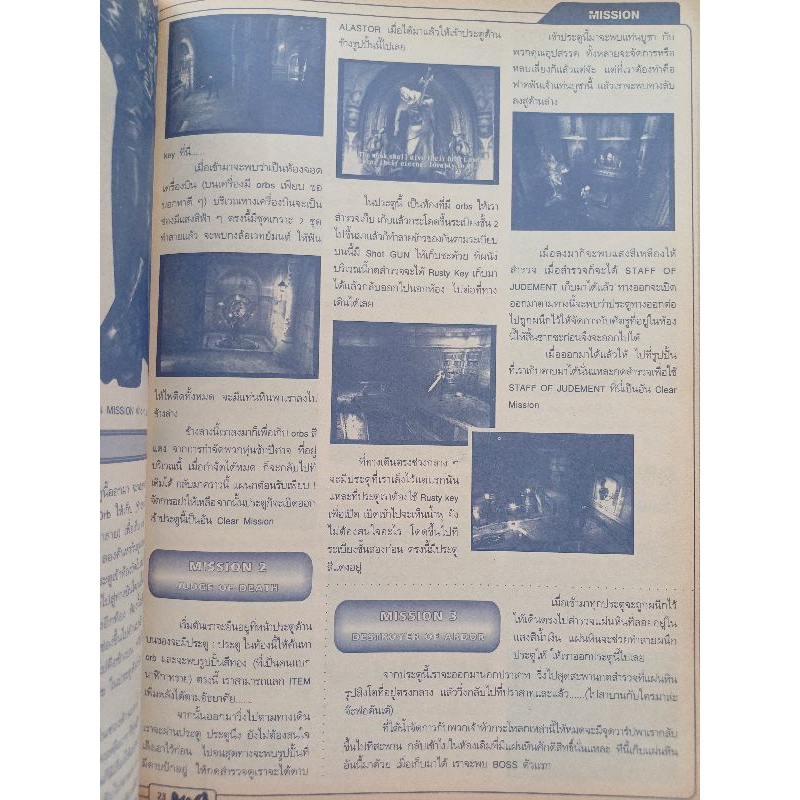 MISSION
key ที่นี่.....
เมื่อเข้ามาจะพบว่าเป็นห้องจอด
เครื่องบิน (บนเครื่องมี orbs เพียบ ขอ
บอกทาดี ๆ) บริเวณทางเครื่องบินจะเป็น
ช่องมีแสงสีฟ้า ๆ ตรงนี้มีชุดเกราะ 2 ชุด
ทำลายแล้ว จะพบกงล้อเวทย์มนต์ ให้ฟัน
ให้ไฟติดทั้งหมด จะมีแท่นหินพาเราลงไป
ข้างล่าง
ข้างล่างนี้เราลงมาก็เพื่อเก็บ orbs สี
แดง จากการกำจัดพวกหุ่นชักปีศาจ ที่อยู่
บริเวณนี้ เมื่อกำจัดได้หมด ก็จะกลับไปที่
เดิมได้ กลับมาคราวนี้ แผนกต้อนรับเพียบ !
จัดการอย่าให้เหลือจากนั้นประตูก็จะเปิดออก
เข้าประตูนี้เป็นอัน Clear Mission
MISSION 2
JUDGE OF DEATH
เริ่มต้นเราจะยืนอยู่ที่หน้าประตูด้าน
บนของจอมีประตู 1 ประตู ในห้องนี้ให้ค้นหา
orb และจะพบรูปปั้นสีทอง (ที่เป็นคนแบก
นาฬิกาทราย) ตรงนี้ เราสามารถแลก ITEM
เพิ่มพลังได้ตามอัธยาศัย......
จากนั้นออกมาวิ่งไปตามทางเดิน
เราจะผ่านประตู ประตูนึง ยังไม่ต้องสนใจ
เดินเอาไว้ก่อน ไปจนสุดทางจะพบรูปปั้นที่
มีดาบปักอยู่ ให้กดสำรวจดูเราจะได้ดาบ
ALASTOR เมื่อได้มาแล้วให้เข้าประตูด้าน
ข้างรูปปั้นนี้ไปเลย
ในประตูนี้ เป็นห้องที่มี orbs ให้เรา
สำรวจเก็บ เก็บแล้วกระโดดขึ้นระเบียงชั้น 2
ไปขึ้นมาแล้วก็ทำลายข้าวของกันตามระเบียบ
บนนี้มี Shot GUN ให้เก็บซะด้วย ที่ผนัง
บริเวณนี้กดสำรวจจะได้ Rusty Key เก็บมา
ได้แล้วกลับออกไปนอกห้อง ไปต่อที่ทาง
เดินได้เลย
ที่ทางเดินตรงช่วงกลาง ๆ
จะมีประตูที่เราเล็งไว้แต่แรกนั่น
แหละที่ประตูเราต้องใช้ Rusty key
เพื่อเปิด เปิดเข้าไปจะเห็นน้ำพุ ยัง
ไม่ต้องสนใจอะไร โดดขึ้นไปที่
ระเบียงชั้นสองก่อน ตรงนี้มีประตู
สีแดงอยู่
เข้าประตูนี้มาจะพบแท่นบูชา กับ
พวกคุณอุปสรรค ทั้งหลายจะจัดการหรือ
หลบเลี่ยงก็แล้วแต่จ๊ะ แต่ที่เราต้องทำคือ
ฟาดฟันเจ้าแท่นบูชานี้ แล้วเราจะพบทางลับ
ลงสู่ด้านล่าง
เมื่อลงมาก็จะพบแสงสีเหลืองให้
สำรวจ เมื่อสำรวจก็จะได้ STAFF OF
JUDEMENT เก็บมาได้แล้ว ทางออกจะเปิด
ออกมาตามทางนี้จะพบว่าประตูทางออกต่อ
ไปถูกผนึกไว้ให้จัดการกับศัตรูที่อยู่ในห้อง
นี้ให้สิ้นซากซะก่อนจึงจะออกไปได้
เมื่อออกมาได้แล้วให้ ไปที่รูปปั้น
ที่เราเก็บดาบมาได้นั่นแหละกดสำรวจเพื่อใช้
STAFF OF JUDEMENT ที่นี่เป็นอัน Clear
Mission
MISSION 3
DESTROYER OF ARDOR
เมื่อเข้ามาทุกประตูจะถูกผนึกไว้
ให้เดินตรงไปสำรวจแผ่นหินที่ลอยอยู่ใน
แสงสีน้ำเงิน แผ่นหินจะช่วยทำลายผนึก
ประตูให้ ให้เราออกประตูนี้ไปเลย
จากประตูนี้เราจะออกมานอกปราสาท วิ่งไปสุดสะพานกดสำรวจที่แผ่นหิน
รูปสิงโตที่อยู่ตรงกลาง แล้ววิ่งกลับไปที่ปราสาทและแล้ว......(ไปสาบานกับใครมาล่ะ
จ๊ะพ่อดันเต้)
ที่ใต้น้ำจัดการกับพวกเจ้าหัวกระโหลกเหล่านี้ให้หมดจะมีจุดวาร์ปพาเรากลับ
ขึ้นไปที่สะพาน กลับเข้าไปในห้องเดิมที่มีแผ่นหินศักดิ์สิทธิ์นั่นแหละ ที่นี่เก็บแผ่นหิน
อันนี้มาด้วย เมื่อเก็บมาได้ เราจะพบ BOSS ตัวแรก
23